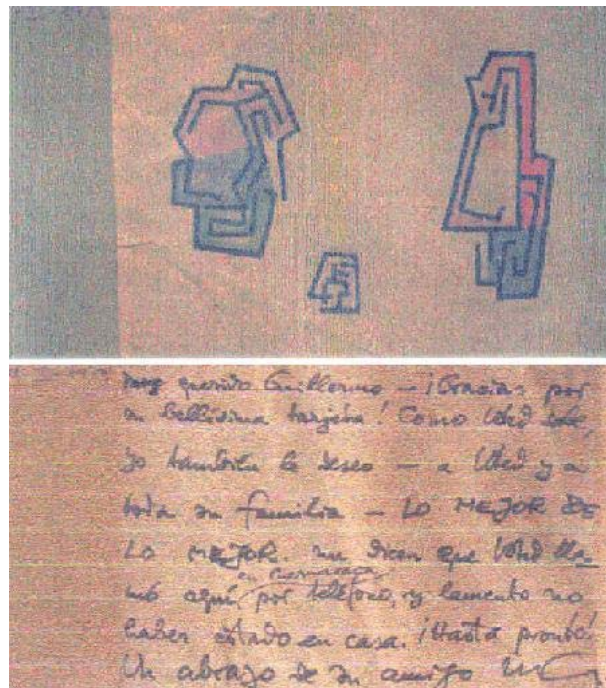 muy querido Guillermo — ¡Gracias por
su bellísima tarjeta! Como Usted sabe,
yo también le deseo — a Usted y a
toda su familia — LO MEJOR DE
LO MEJOR. me dicen que Usted lla-
en Cuernavaca
mó aquí, por teléfono, y lamento no
haber estado en casa. ¡Hasta pronto!
Un abrazo de su amigo